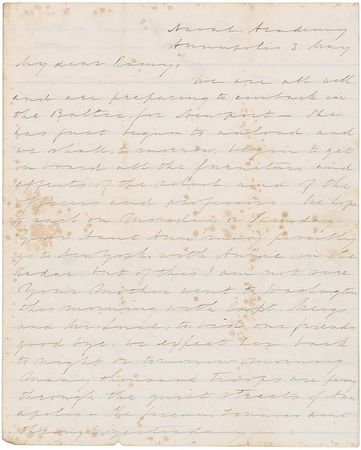 Naval Academy
Annapolis 3 May
My dear
We are all well
and are preparing to embark in
the Baltic for Newport - She
has just begun to unload, and
we shall, to morrow, begin to get
on board all the furniture and
effects of the school and of the
Officers and Professors. We hope
to sail on Monday or Tuesday.
Your Aunt Ann may possibly
go to New York, with Annie in the
but of this I am not sure
Your Mother went to Washington
this morning with Capt. Meigs
and Mr. Luce, to bid our friends
good bye. We expect her back
to night, or to morrow morning
Many thousand troops are
through the quiet streets of Ann
apolis - the Zouaves went
through yesterday